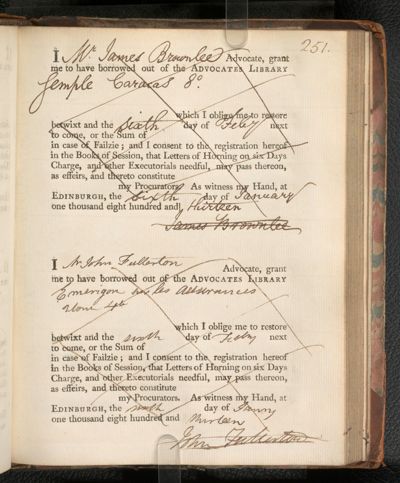 251.
I Mr. James Brownlee Advocate, grant
me to have borrowed out of the ADVOCATES LIBRARY
Semple Caracas 8o.
which I oblige me to restore
betwixt and the Sixth day of Feby next
to come, or the Sum of
in case of Failzie; and I consent to the registration hereof
in the Books of Session, that Letters of Horning on six Days
Charge, and other Executorials needful, may pass thereon,
as effeirs, and thereto constitute
my Procurators. As witness my Hand, at
EDINBURGH, the Sixth day of January
one thousand eight hundred and Thirteen
James Brownlee
I Mr John Fullerton
Advocate, grant
me to have borrowed out of the ADVOCATES LIBRARY
Emerigon les Assurances
2 tom 4to
which I oblige me to restore
betwixt and the sixth day of Feby next
to come, or the Sum of
in case of Failzie; and I consent to the registration hereof
in the Books of Session, that Letters of Horning on six Days
Charge, and other Executorials needful, may pass thereon,
as effeirs, and thereto constitute
my Procurators. As witness my Hand, at
EDINBURGH, the sixth day of Janry
one thousand eight hundred and thirteen
John Fullerton